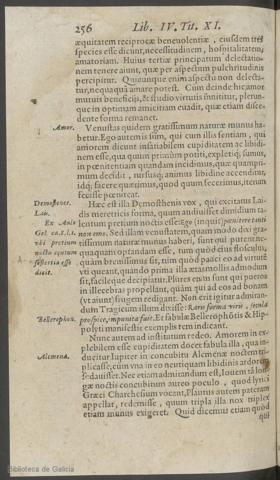 256 Lib. IV. Tit. XI.
æquitatem reciprocæ benevolentiæ, eiusdem tres
species esse dicunt, necessitudinem, hospitalitatem,
amatoriam. Huius tertiæ principatum delectatio-
nem tenere aiunt, quæ per aspectum pulchritudinis
percipitur. Quicunque enim aspectu non delecta-
tur, nequaquā amare potest. Cum deinde hic amor
mutuis beneficijs, & studio virtutis innititur, plerun-
que in optimam amicitiam evadit, quæ etiam disce-
dente forma remanet.
Amor.
Venustas quidem gratissimum naturæ munus ha-
betur. Ego autem is sum, qui cum illis sentiam, qui
amorem dicunt insatiabilem cupiditatem ac libidi-
nem esse, qua quum primùm potiti, expletiq; sumus,
in pœnitentiam quandam incidimus, quæ quumpri-
mum decidit, rursusq; animus libidine accenditur,
idq; facere quærimus, quod quum fecerimus, iterum
fecisse pœnitet.
Demosthenes.
Lais.
Ex Aulo
Gel. ca. 8. l. 1.
ubi pretium
noctis centum
sestertia esse
dicit.
Hæc est illa Demosthenis vox, qui excitatus Lai-
dis meretricis forma, quum audiisset dimidium ta-
lentum pretium noctis esse: Ego (inquit) pœnitere tanti
non emo. Sed illam venustatem, quam modo dixi gra-
tissimum naturæ munus haberi, sunt qui putent ne-
quaquam optandam esse, tum quòd eius flosculus,
quàm brevissimus sit, tum quòd pauci eo ad virtutē
uti queant, quando prima illa ætas mollis admodum
sit, facileque decipiatur. Plures enim sunt qui pereos
in illecebras propellant, quàm qui ad eos ad bonam
(ut aiunt) frugem redigant. Non erit igitur admiran-
dum Tragicum illum dixisse: Raro forma viro, secula
Bellerophon.
prospice, impunita fuit. Et fabulæ Bellerophōtis & Hip-
polyti manifestis exemplis rem indicant.
Nunc autem ad institutum redeo. Amorem in ex-
plebilem esse cupiditatem docet fabula illa, qua in-
Alcmena.
ducitur Iupiter in concubitu Alcmenæ noctem tri-
plicasse, cùm vna in eo neutiquam libidinis ardorem
sedavisset. Nec etiam admirandum est, Iovem tā lon-
gæ noctis concubinum aureo poculo, quod lyrici
Græci Charchesium vocant, Plautus autem pateram
appellat, redemisse, quum tripla illa nox triplex
etiam munus exigeret. Quid dicemus etiam quòd
qui
Biblioteca de Galicia